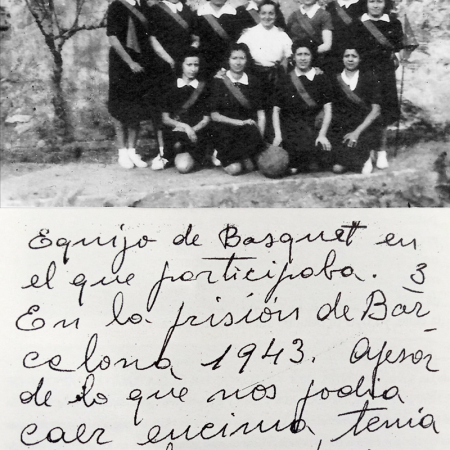 Equipo de Basquet en
el que participaba. 3
En la prisión de Bar
celona 1943. Apesar
de lo que nos podia
caer encima, tenia